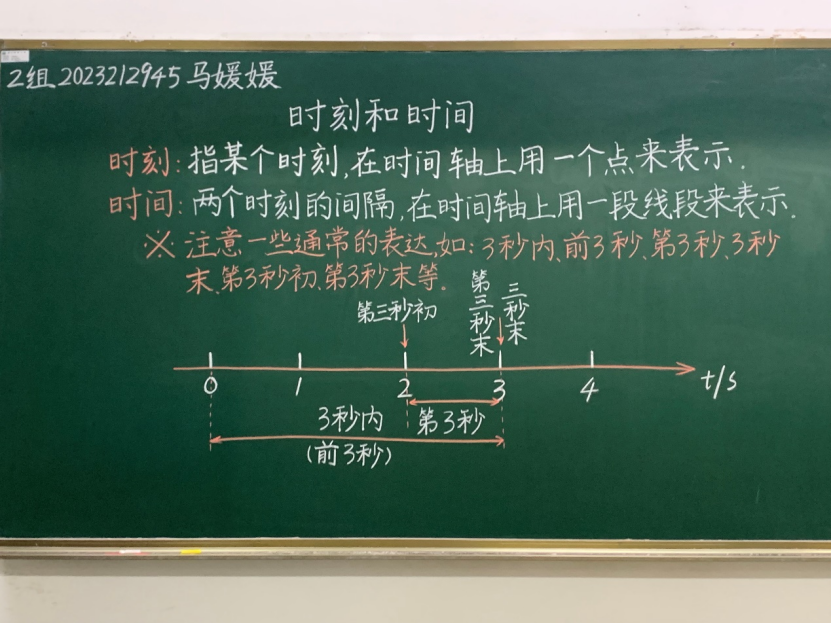 2组 2023212945 马媛媛
时刻和时间
时刻:指某个时刻,在时间轴上用一个点来表示.
时间:两个时刻的间隔,在时间轴上用一段线段来表示.
※ 注意一些通常的表达,如:3秒内、前3秒、第3秒、3秒
末、第3秒初、第3秒末等.
第三秒初 第三秒末 三秒末
0 1 2 3 4 t/s
3秒内 第3秒
(前3秒)